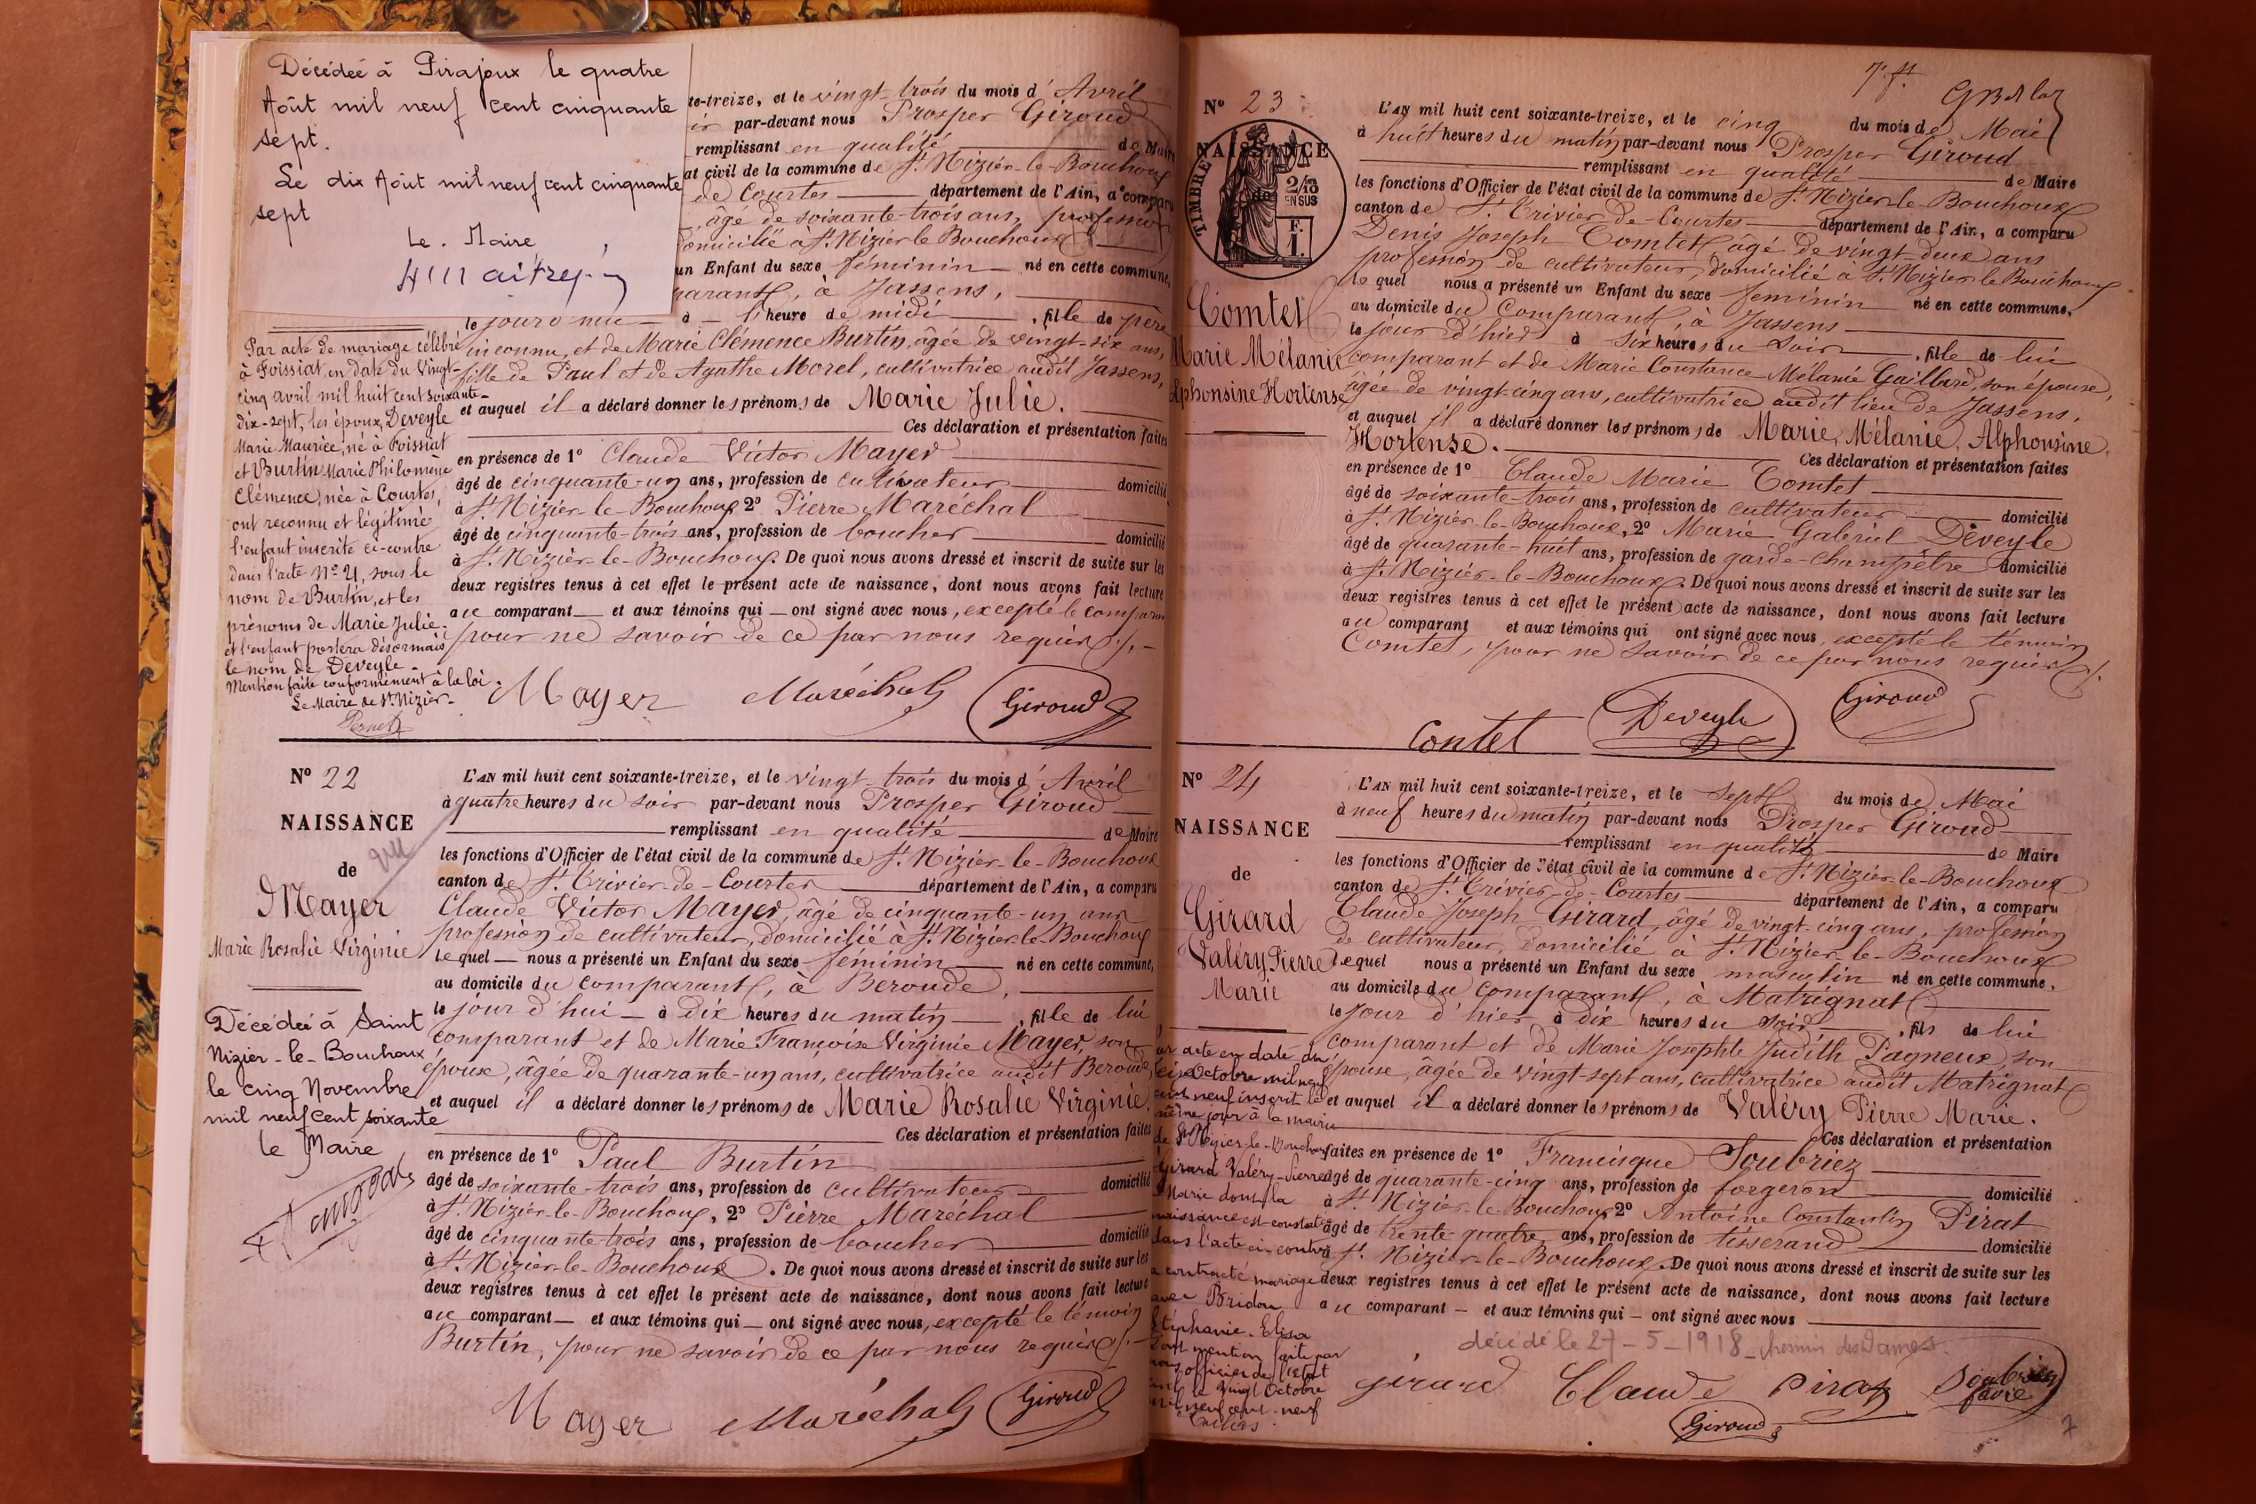 Décédée à Pirajoux le quatre
Août mil neuf cent cinquante
sept.
Le dix Août mil neuf cent cinquante
sept
Le Maire
te-treize, et le vingt-trois du mois d'Avril
par-devant nous Prosper Giroud
remplissant en qualité de Maire
at civil de la commune de St. Nizier-le-Bouchoux
de Courtes département de l'Ain, a comparu
âgé de soixante-trois ans, profession
domicilié à St. Nizier le Bouchoux
un Enfant du sexe féminin né en cette commune,
parant, à Jassens,
le jour d'hui à l'heure de midi, fille de père
inconnu, et de Marie Clémence Burtin, âgée de vingt-six ans,
fille de Paul et de Agathe Morel, cultivatrice audit Jassens,
et auquel il a déclaré donner les prénoms de Marie Julie.
Ces déclaration et présentation faites
en présence de 1° Claude Victor Mayer
âgé de cinquante-un ans, profession de cultivateur domicilié
à St. Nizier-le-Bouchoux 2° Pierre Maréchal
âgé de cinquante-trois ans, profession de boucher domicilié
à St. Nizier-le-Bouchoux. De quoi nous avons dressé et inscrit de suite sur les
deux registres tenus à cet effet le présent acte de naissance, dont nous avons fait lecture
au comparant et aux témoins qui ont signé avec nous, excepté le comparant
pour ne savoir de ce par nous requis ./.
Mayer Maréchal Giroud
Par acte de mariage célébré
à Foissiat en date du Vingt-
cinq avril mil huit cent soixante-
dix-sept, les époux Deveyle
Marie Maurice, né à Foissiat
et Burtin Marie Philomène
Clémence, née à Courtes,
ont reconnu et légitimé
l'enfant inscrite ci-contre
dans l'acte N° 21, sous le
nom de Burtin, et les
prénoms de Marie Julie.
et l'enfant portera désormais
le nom de Deveyle.
Mention faite conformément à la loi.
Le Maire de St. Nizier.
N° 22
NAISSANCE
de
Mayer
Marie Rosalie Virginie
Décédée à Saint
Nizier-le-Bouchoux
le cinq Novembre
mil neuf cent soixante
le Maire
L'AN mil huit cent soixante-treize, et le vingt-trois du mois d'Avril
à quatre heures du soir par-devant nous Prosper Giroud
remplissant en qualité de Maire
les fonctions d'Officier de l'état civil de la commune de St. Nizier-le-Bouchoux
canton de St. Trivier-de-Courtes département de l'Ain, a comparu
Claude Victor Mayer, âgé de cinquante-un ans
profession de cultivateur, domicilié à St. Nizier-le-Bouchoux
lequel nous a présenté un Enfant du sexe féminin né en cette commune,
au domicile du comparant, à Beroude,
le jour d'hui à dix heures du matin, fille de lui
comparant et de Marie Françoise Virginie Mayer, son
épouse, âgée de quarante-un ans, cultivatrice audit Beroude,
et auquel il a déclaré donner les prénoms de Marie Rosalie Virginie.
Ces déclaration et présentation faites
en présence de 1° Paul Burtin
âgé de soixante-trois ans, profession de cultivateur domicilié
à St. Nizier-le-Bouchoux, 2° Pierre Maréchal
âgé de cinquante-trois ans, profession de boucher domicilié
à St. Nizier-le-Bouchoux. De quoi nous avons dressé et inscrit de suite sur les
deux registres tenus à cet effet le présent acte de naissance, dont nous avons fait lecture
au comparant et aux témoins qui ont signé avec nous, excepté le témoin
Burtin, pour ne savoir de ce par nous requis ./.
Mayer Maréchal Giroud
7e ft
N° 23
NAISSANCE
de
TIMBRE
2/10
EN SUS
F.
1.
Comtet
Marie Mélanie
Alphonsine Hortense
L'AN mil huit cent soixante-treize, et le cinq du mois de Mai
à huit heures du matin par-devant nous Prosper Giroud
remplissant en qualité de Maire
les fonctions d'Officier de l'état civil de la commune de St. Nizier-le-Bouchoux
canton de St. Trivier-de-Courtes département de l'Ain, a comparu
Denis Joseph Comtet âgé de vingt-deux ans
profession de cultivateur, domicilié à St. Nizier le Bouchoux
lequel nous a présenté un Enfant du sexe féminin né en cette commune,
au domicile du comparant, à Jassens
le jour d'hier à six heures du soir, fille de lui
comparant et de Marie Constance Mélanie Gaillard, son épouse,
âgée de vingt-cinq ans, cultivatrice audit lieu de Jassens,
et auquel il a déclaré donner les prénoms de Marie, Mélanie, Alphonsine,
Hortense. Ces déclaration et présentation faites
en présence de 1° Claude Marie Comtet
âgé de soixante-trois ans, profession de cultivateur domicilié
à St. Nizier-le-Bouchoux, 2° Marie Gabriel Deveyle
âgé de quarante-huit ans, profession de garde-champêtre domicilié
à St. Nizier-le-Bouchoux. De quoi nous avons dressé et inscrit de suite sur les
deux registres tenus à cet effet le présent acte de naissance, dont nous avons fait lecture
au comparant et aux témoins qui ont signé avec nous excepté le témoin
Comtet, pour ne savoir de ce par nous requis ./.
Contet Deveyle Giroud
N° 24
NAISSANCE
de
Girard
Valéry Pierre
Marie
L'AN mil huit cent soixante-treize, et le sept du mois de Mai
à neuf heures du matin par-devant nous Prosper Giroud
remplissant en qualité de Maire
les fonctions d'Officier de l'état civil de la commune de St. Nizier-le-Bouchoux
canton de St. Trivier-de-Courtes département de l'Ain, a comparu
Claude Joseph Girard, âgé de vingt-cinq ans, profession
de cultivateur, domicilié à St. Nizier-le-Bouchoux
lequel nous a présenté un Enfant du sexe masculin né en cette commune,
au domicile du comparant, à Matrignat
le jour d'hier à dix heures du soir, fils de lui
comparant et de Marie Josephte Judith Pagneux, son
épouse, âgée de vingt-sept ans, cultivatrice audit Matrignat
et auquel il a déclaré donner les prénoms de Valéry Pierre Marie.
Ces déclaration et présentation
faites en présence de 1° Francisque Soubriez
âgé de quarante-cinq ans, profession de forgeron domicilié
à St. Nizier-le-Bouchoux 2° Antoine Constantin Pirat
âgé de trente-quatre ans, profession de tisserand domicilié
à St. Nizier-le-Bouchoux. De quoi nous avons dressé et inscrit de suite sur les
deux registres tenus à cet effet le présent acte de naissance, dont nous avons fait lecture
au comparant et aux témoins qui ont signé avec nous
décédé le 27-5-1918 chemin des Dames.
Girard Claude Pirat
Giroud
7
acte en date du
Octobre mil neuf
cent neuf inscrit le
même jour à la mairie
de St Nizier-le-Bouchoux
Girard Valéry-Pierre
Marie dont la
naissance est constatée
dans l'acte ci-contre
a contracté mariage
avec Bridon
Stéphanie-Elisa
Dont mention faite par
nous officier de l'état
civil le vingt Octobre
mil neuf cent neuf